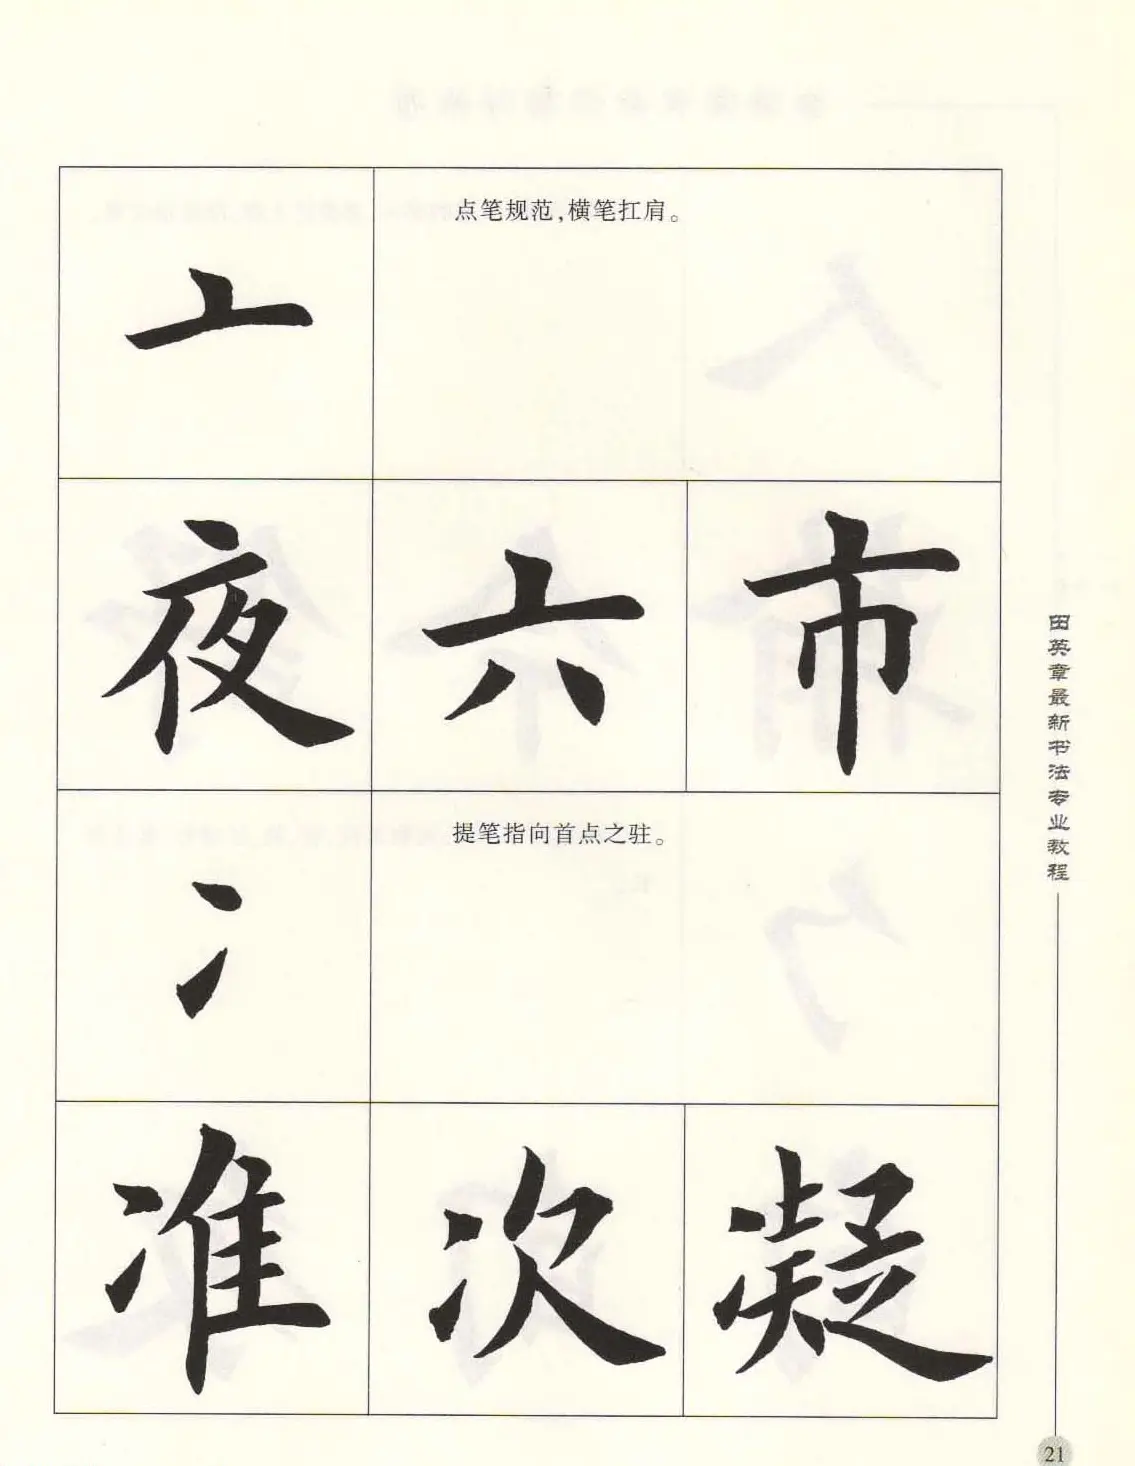 亠
点笔规范，横笔扛肩。
夜 六 市
冫
提笔指向首点之驻。
准 次 凝
田英章最新书法专业教程
21